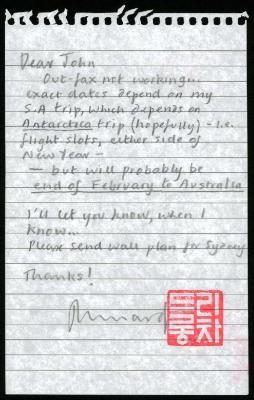 Dear John
Out-fax not working...
exact dates depend on my
S.A trip, which depends on
Antarctica trip (hopefully) - i.e.
flight slots, either side of
New Year -
- but will probably be
end of February to Australia
I'll let you know, when I
know...
Please send wall plan for Sydney
Thanks!
리
차
드
롱